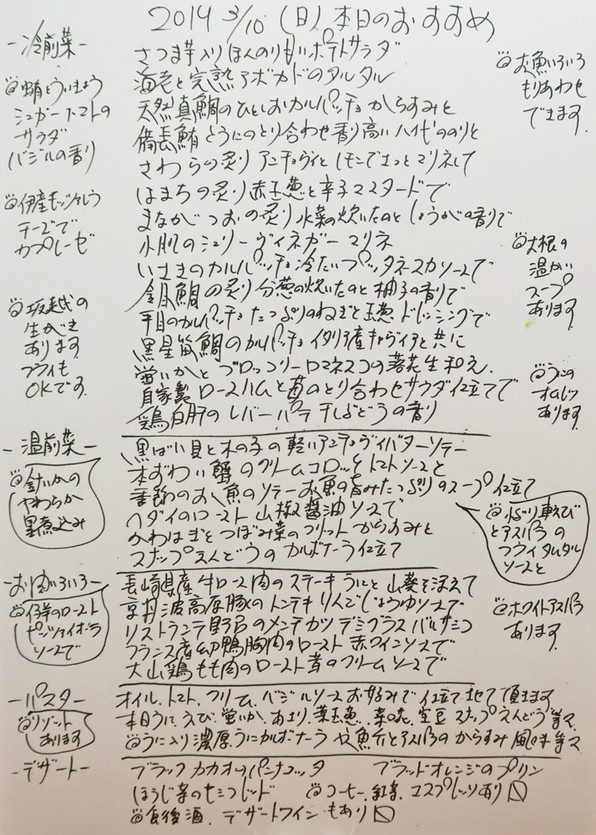 2014 3/10 (日) 本日のおすすめ
-冷前菜-
さつま芋入りほんのり甘いポテトサラダ
海老と完熟アボカドのタルタル
天然真鯛のひとしおカルパッチョ からすみと
備長鮪とうにのとり合わせ香り高いハイゲののりと
さわらの炙り アンチョヴィとレモンでさっとマリネして
はまちの炙り赤玉葱と辛子マスタードで
まながつおの炙り 水菜の炊いたのとしょうがの香りで
小肌のシェリーヴィネガーマリネ
いさきのカルパッチョ冷たいプッタネスカソースで
金目鯛の炙り分葱の炊いたのと柚子の香りで
平目のカルパッチョたっぷりのねぎと玉葱ドレッシングで
黒星笛鯛のカルパッチョ イタリア産キャヴィアと共に
蛍いかとブロッコリーロマネスコの落花生和え
自家製ロースハムと苺のとり合わせサラダ仕立てで
鶏白肝のレバーパテ干しぶどうの香り
蛸とういきょう
シュガートマトの
サラダ
バジルの香り
伊産モッツァレラ
チーズで
カプレーゼ
坂越の
生がき
あります
フライも
OKです。
お魚いろいろ
もりあわせ
できます。
大根の
温かい
スープ
あります。
うにの
オムレツ
あります。
-温前菜-
黒ばい貝と木の子の軽いアンチョヴィバターソテー
本ずわい蟹のクリームコロッケトマトソースと
季節のお魚のソテーお魚の旨みたっぷりのスープ仕立て
ヘダイのロースト 山椒醤油ソースで
かわはぎとつぼみ菜のフリット からすみと
スナップえんどうのカルボナーラ仕立て
針いかの
やわらか
墨煮込み
車えび
とアスパラの
フライタルタル
ソースと
-お肉いろいろ-
長崎県産牛ロース肉のステーキうにと山葵を添えて
京丹波高原豚のトンテキりんごじょうゆソースで
リストランテ野呂のメンチカツデミグラスバルサミコ
フランス産幼鴨胸肉のロースト赤ワインソースで
大山鶏もも肉のロースト茸のクリームソースで
仔羊のロースト
ピッツァイオーラ
ソースで
ホワイトアスパラ
あります。
-パスタ-
オイル、トマト、クリーム、バジルソースお好みで仕立て頂きます
本日うに、えび、蛍いか、あさり、葉玉葱、菜の花、空豆、スナップえんどう等々
うに入り濃厚うにカルボナーラや魚介とアスパラのからすみ風味等々
リゾット
あります
-デザート-
ブラックカカオのパンナコッタ ブラッドオレンジのプリン
ほうじ茶のセミフレッド コーヒー、紅茶、エスプレッソあり
食後酒、デザートワインもあり